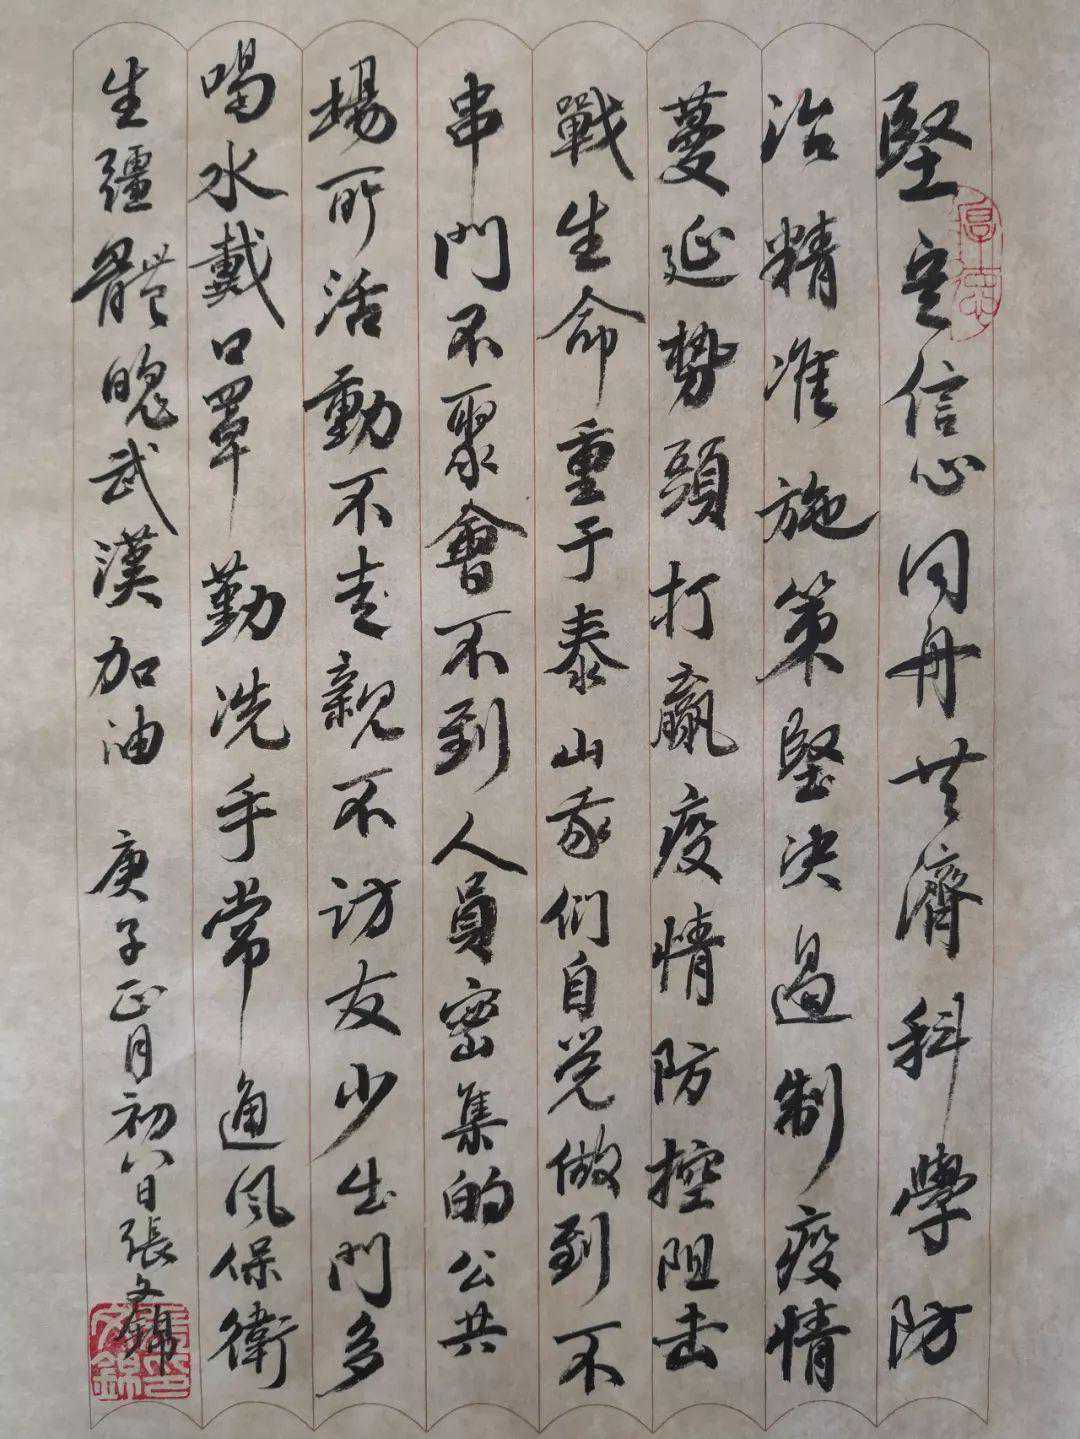 堅定信心同舟共濟科學防
治精准施策堅決遏制疫情
蔓延势頭打贏疫情防控阻击
戰生命重于泰山我们自觉做到不
串門不聚會不到人員密集的公共
場所活動不走親不访友少出門多
喝水戴口罩勤洗手常通风保衛
生疆體魄武漢加油 庚子正月初八日張文錦
厚德